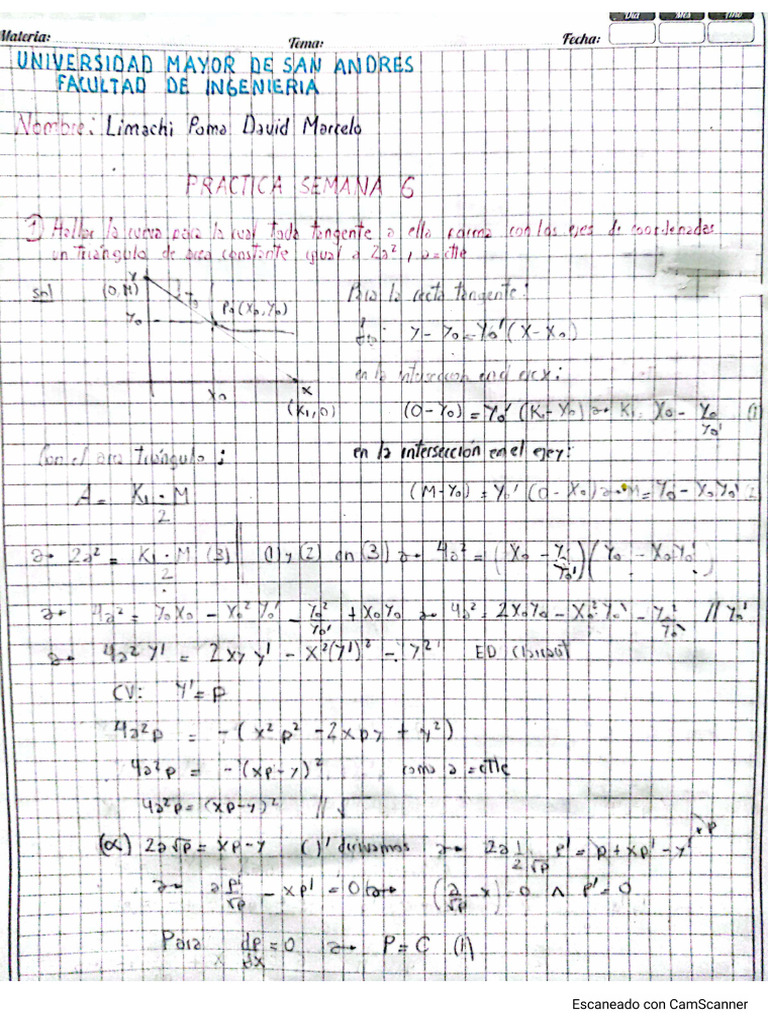 Materia:
Tema:
Fecha:
Día Mes Año
UNIVERSIDAD MAYOR DE SAN ANDRES
FACULTAD DE INGENIERIA
Nombre: Limachi Poma David Marcelo
PRACTICA SEMANA 6
1) Hallar la curva para la cual toda tangente a ella forma con los ejes de coordenadas
un triángulo de area constante igual a 2a², a=ctte
Sol
Y
(0,M)
P0(X0,Y0)
Y0
X0
X
(K1,0)
Para la recta tangente:
Y - Y0 = Y0'(X-X0)
en la interseccion en el eje x:
(0-Y0) = Y0'(K1-X0) → K1 = X0 - Y0/Y0' (1)
en la intersección en el eje y:
(M-Y0) = Y0'(0-X0) → M = Y0 - X0Y0' (2)
Con el area triángulo:
A = K1·M/2
→ 2a² = K1·M/2 (3) (1) y (2) en (3) → 4a² = (X0 - Y0/Y0')(Y0 - X0Y0')
→ 4a² = Y0X0 - X0²Y0' - Y0²/Y0' + X0Y0 → 4a² = 2X0Y0 - X0²Y0' - Y0²/Y0' //Y0'
→ 4a²Y' = 2xy y' - x²(y')² - y² ED Clairaut
CV: Y' = p
4a²p = -(x²p² - 2xpy + y²)
4a²p = -(xp-y)² como a = ctte
4a²p = (xp-y)² //√
(α) 2a√p = xp-y ()' derivamos → 2a 1/2√p p' = p + xp' - y'
→ a p'/√p - xp' = 0 → (a/√p - x) = 0 ∧ p' = 0
Para dp/dx = 0 → P = C (1)
Escaneado con CamScanner